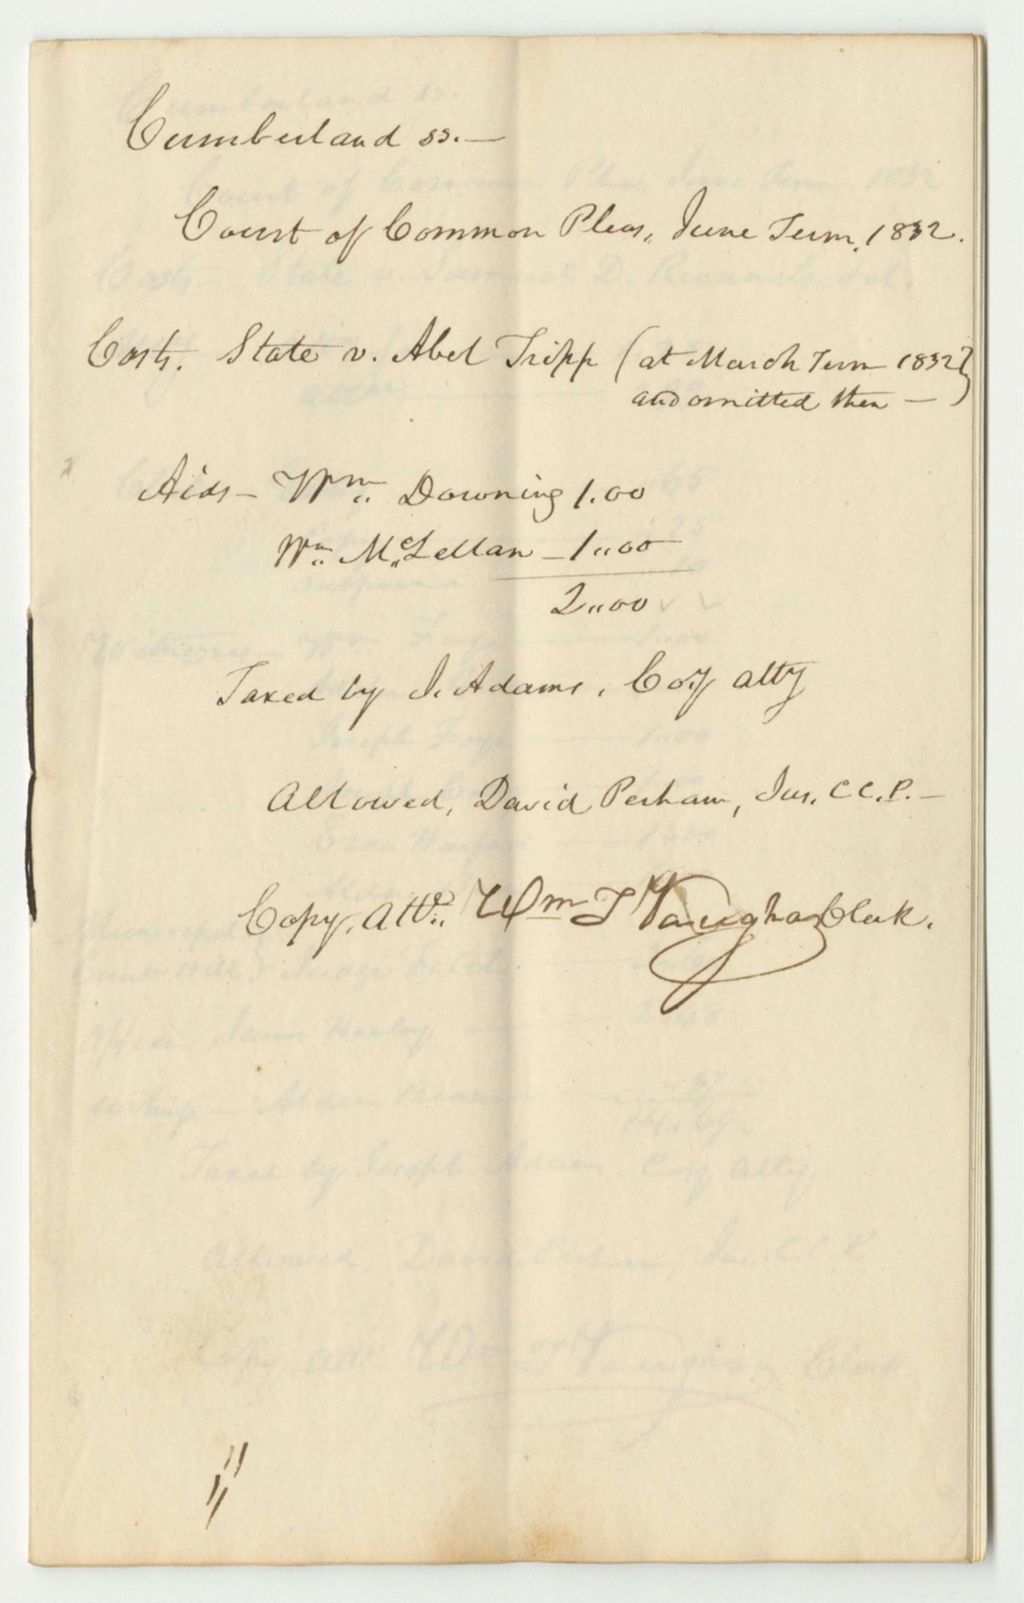 Cumberland ss.—
Court of Common Pleas, June Term, 1832.
Costs. State v. Abel Tripp (at March Term 1832)
and omitted then —
Aids — Wm. Downing 1.00
Wm. McLellan — 1.00
2.00
Taxed by J. Adams, Coy atty
Allowed, David Perham, Jus. C.C.P.—
Copy, Att. Wm T Vaughan Clerk.